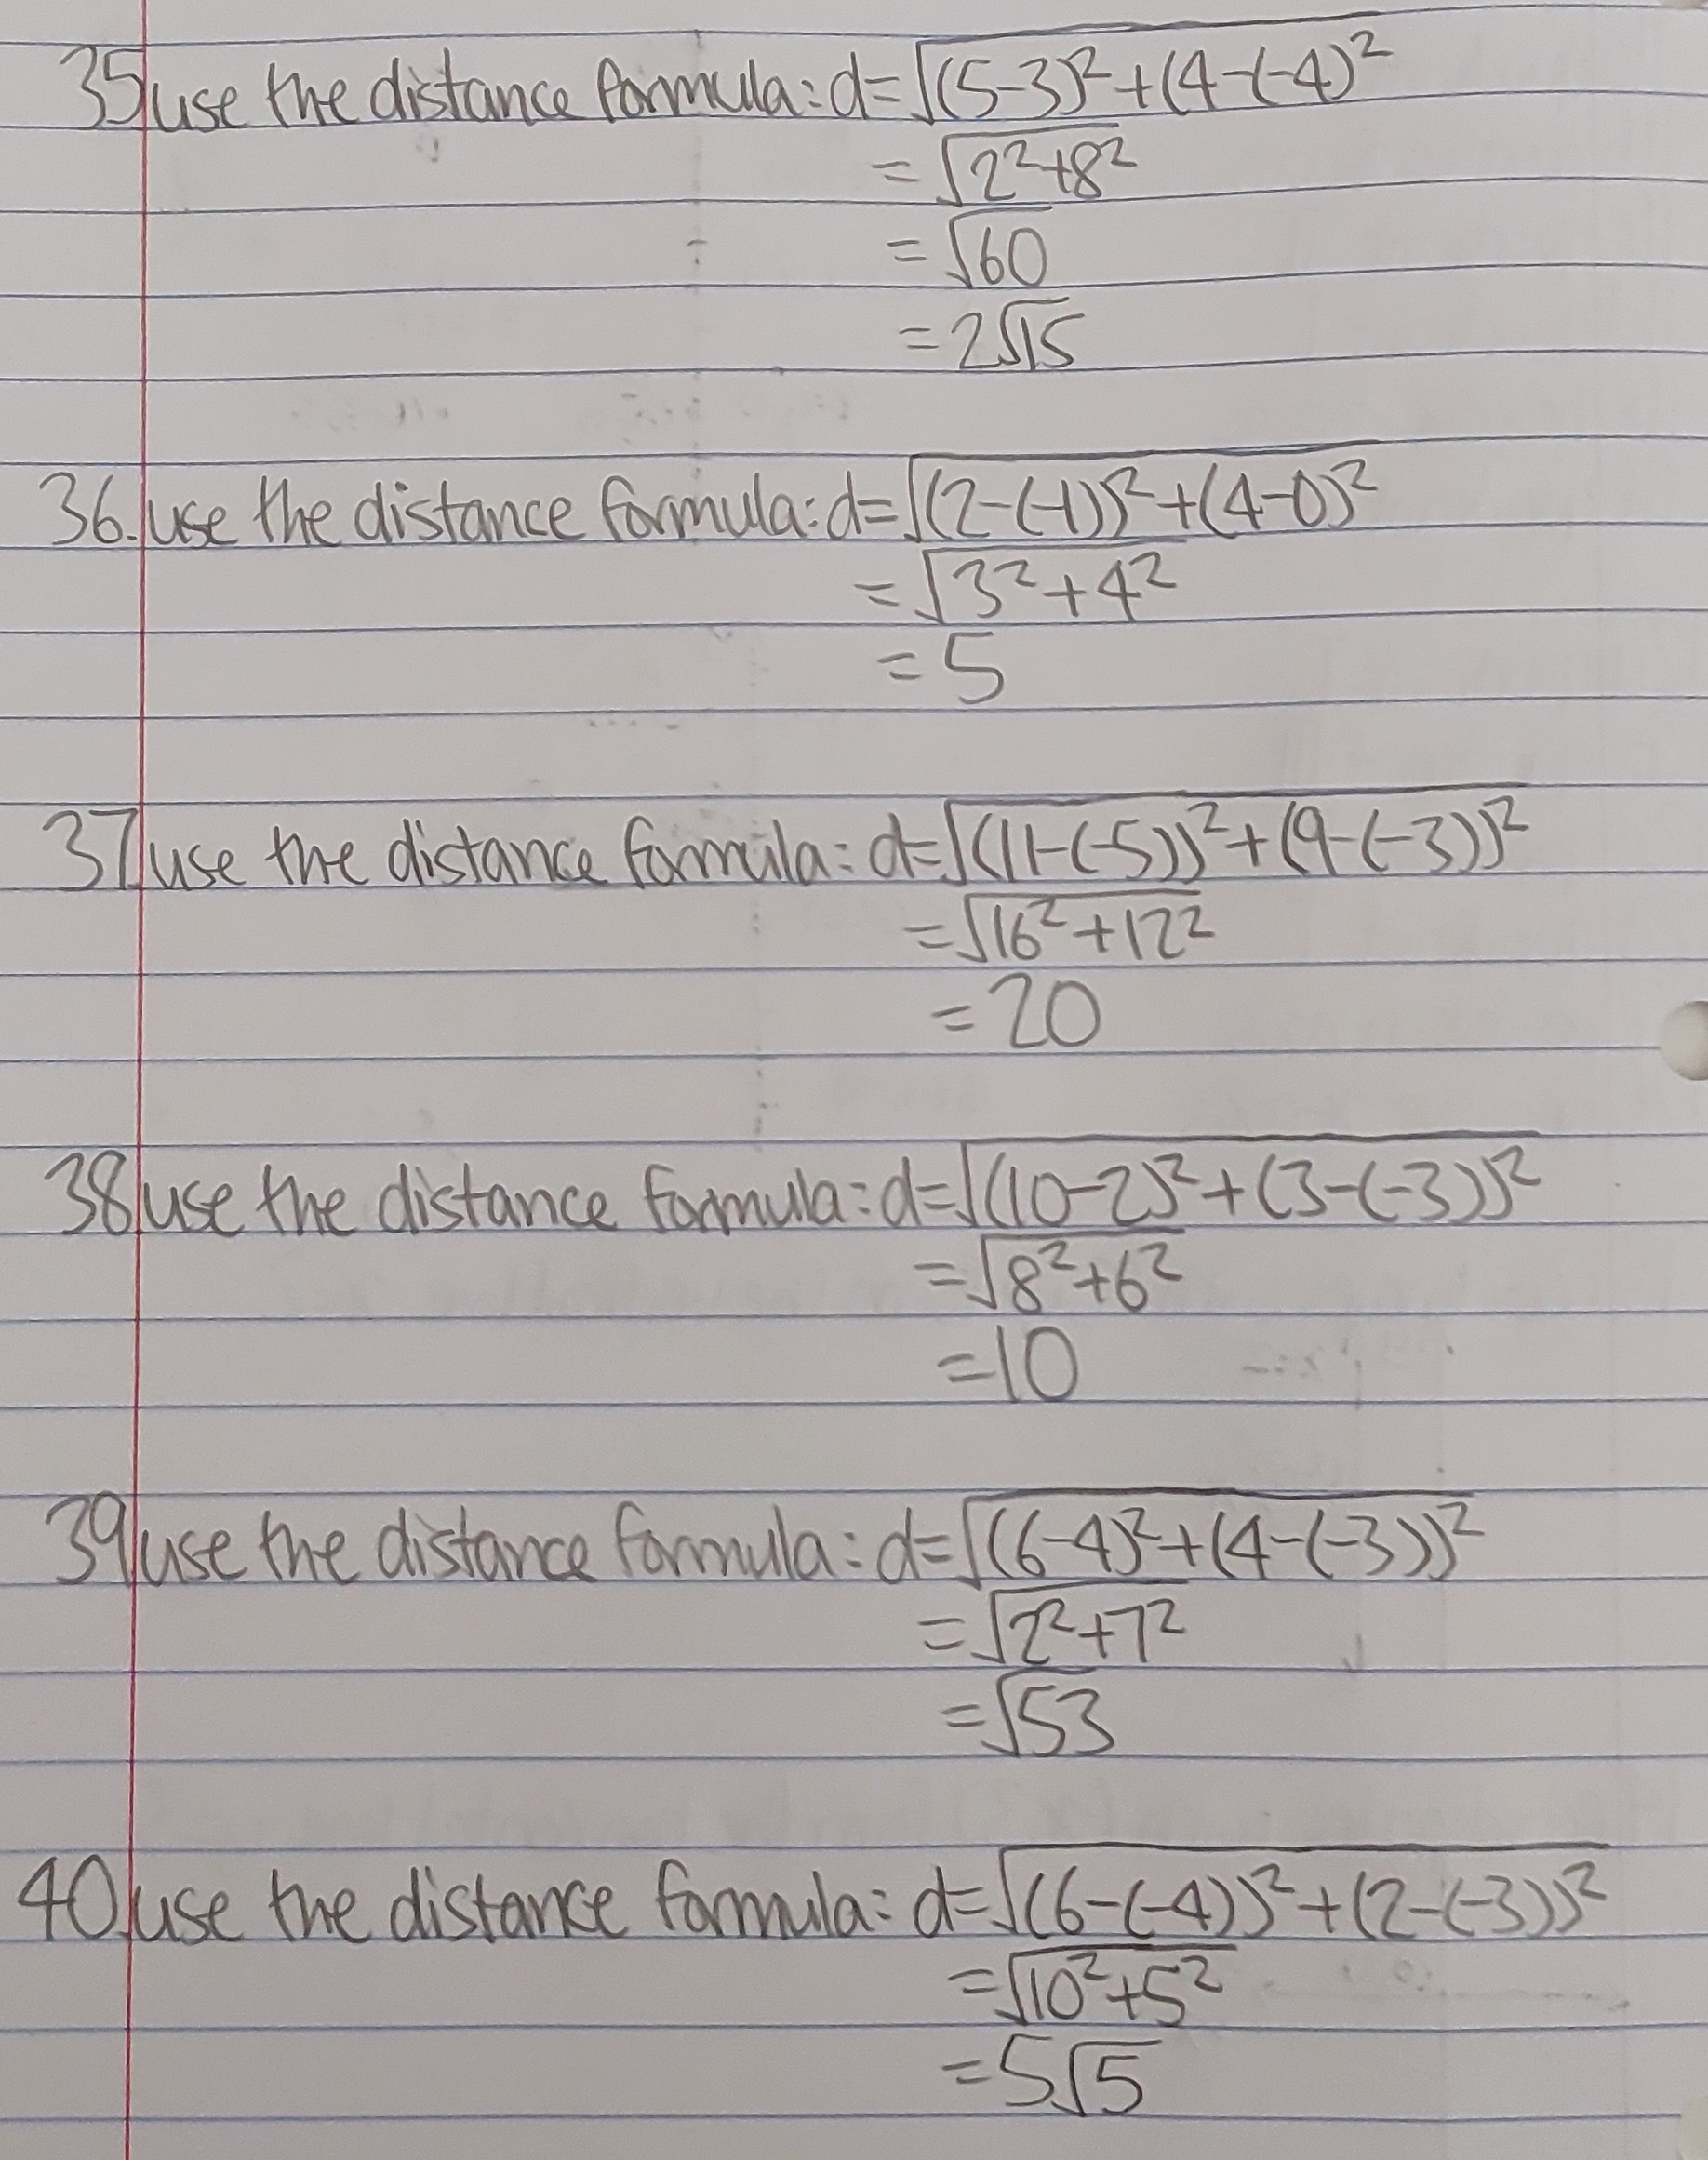 35. use the distance formula: d=√(5-3)²+(4-(-4)²
=√2²+8²
=√60
=2√15
36. use the distance formula: d=√(2-(-1))²+(4-0)²
=√3²+4²
=5
37. use the distance formula: d=√(11-(-5))²+(9-(-3))²
=√16²+12²
=20
38. use the distance formula: d=√(10-2)²+(3-(-3))²
=√8²+6²
=10
39. use the distance formula: d=√(6-4)²+(4-(-3))²
=√2²+7²
=√53
40. use the distance formula: d=√(6-(-4))²+(2-(-3))²
=√10²+5²
=5√5